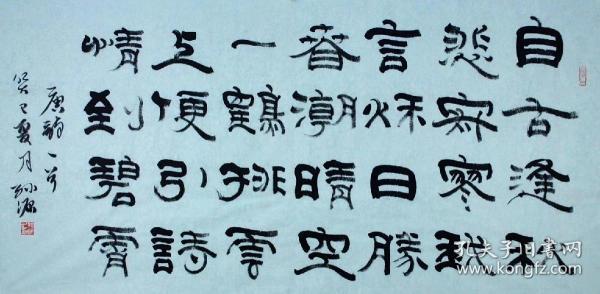 自古逢秋
悲寂寥我
言秋日勝
春潮晴空
一鶴排雲
上便引詩
情到碧霄
唐詩一首
癸巳夏月
孔夫子旧书网
www.kongfz.com